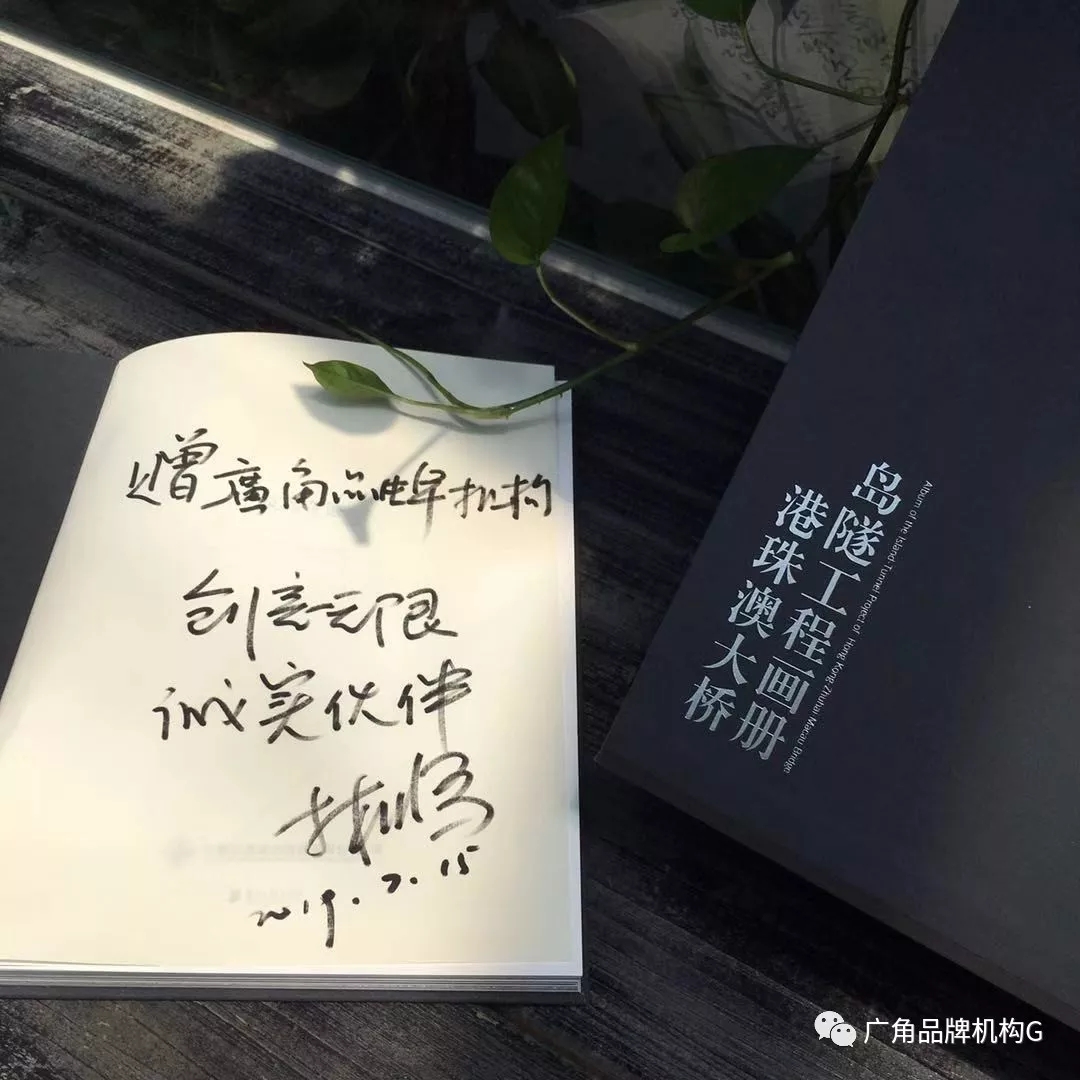 赠廣角品牌机构
创意无限
诚实伙伴
2019.7.15
港珠澳大桥
岛隧工程画册
Album of the Island-Tunnel Project of Hong Kong-Zhuhai-Macau Bridge
广角品牌机构G